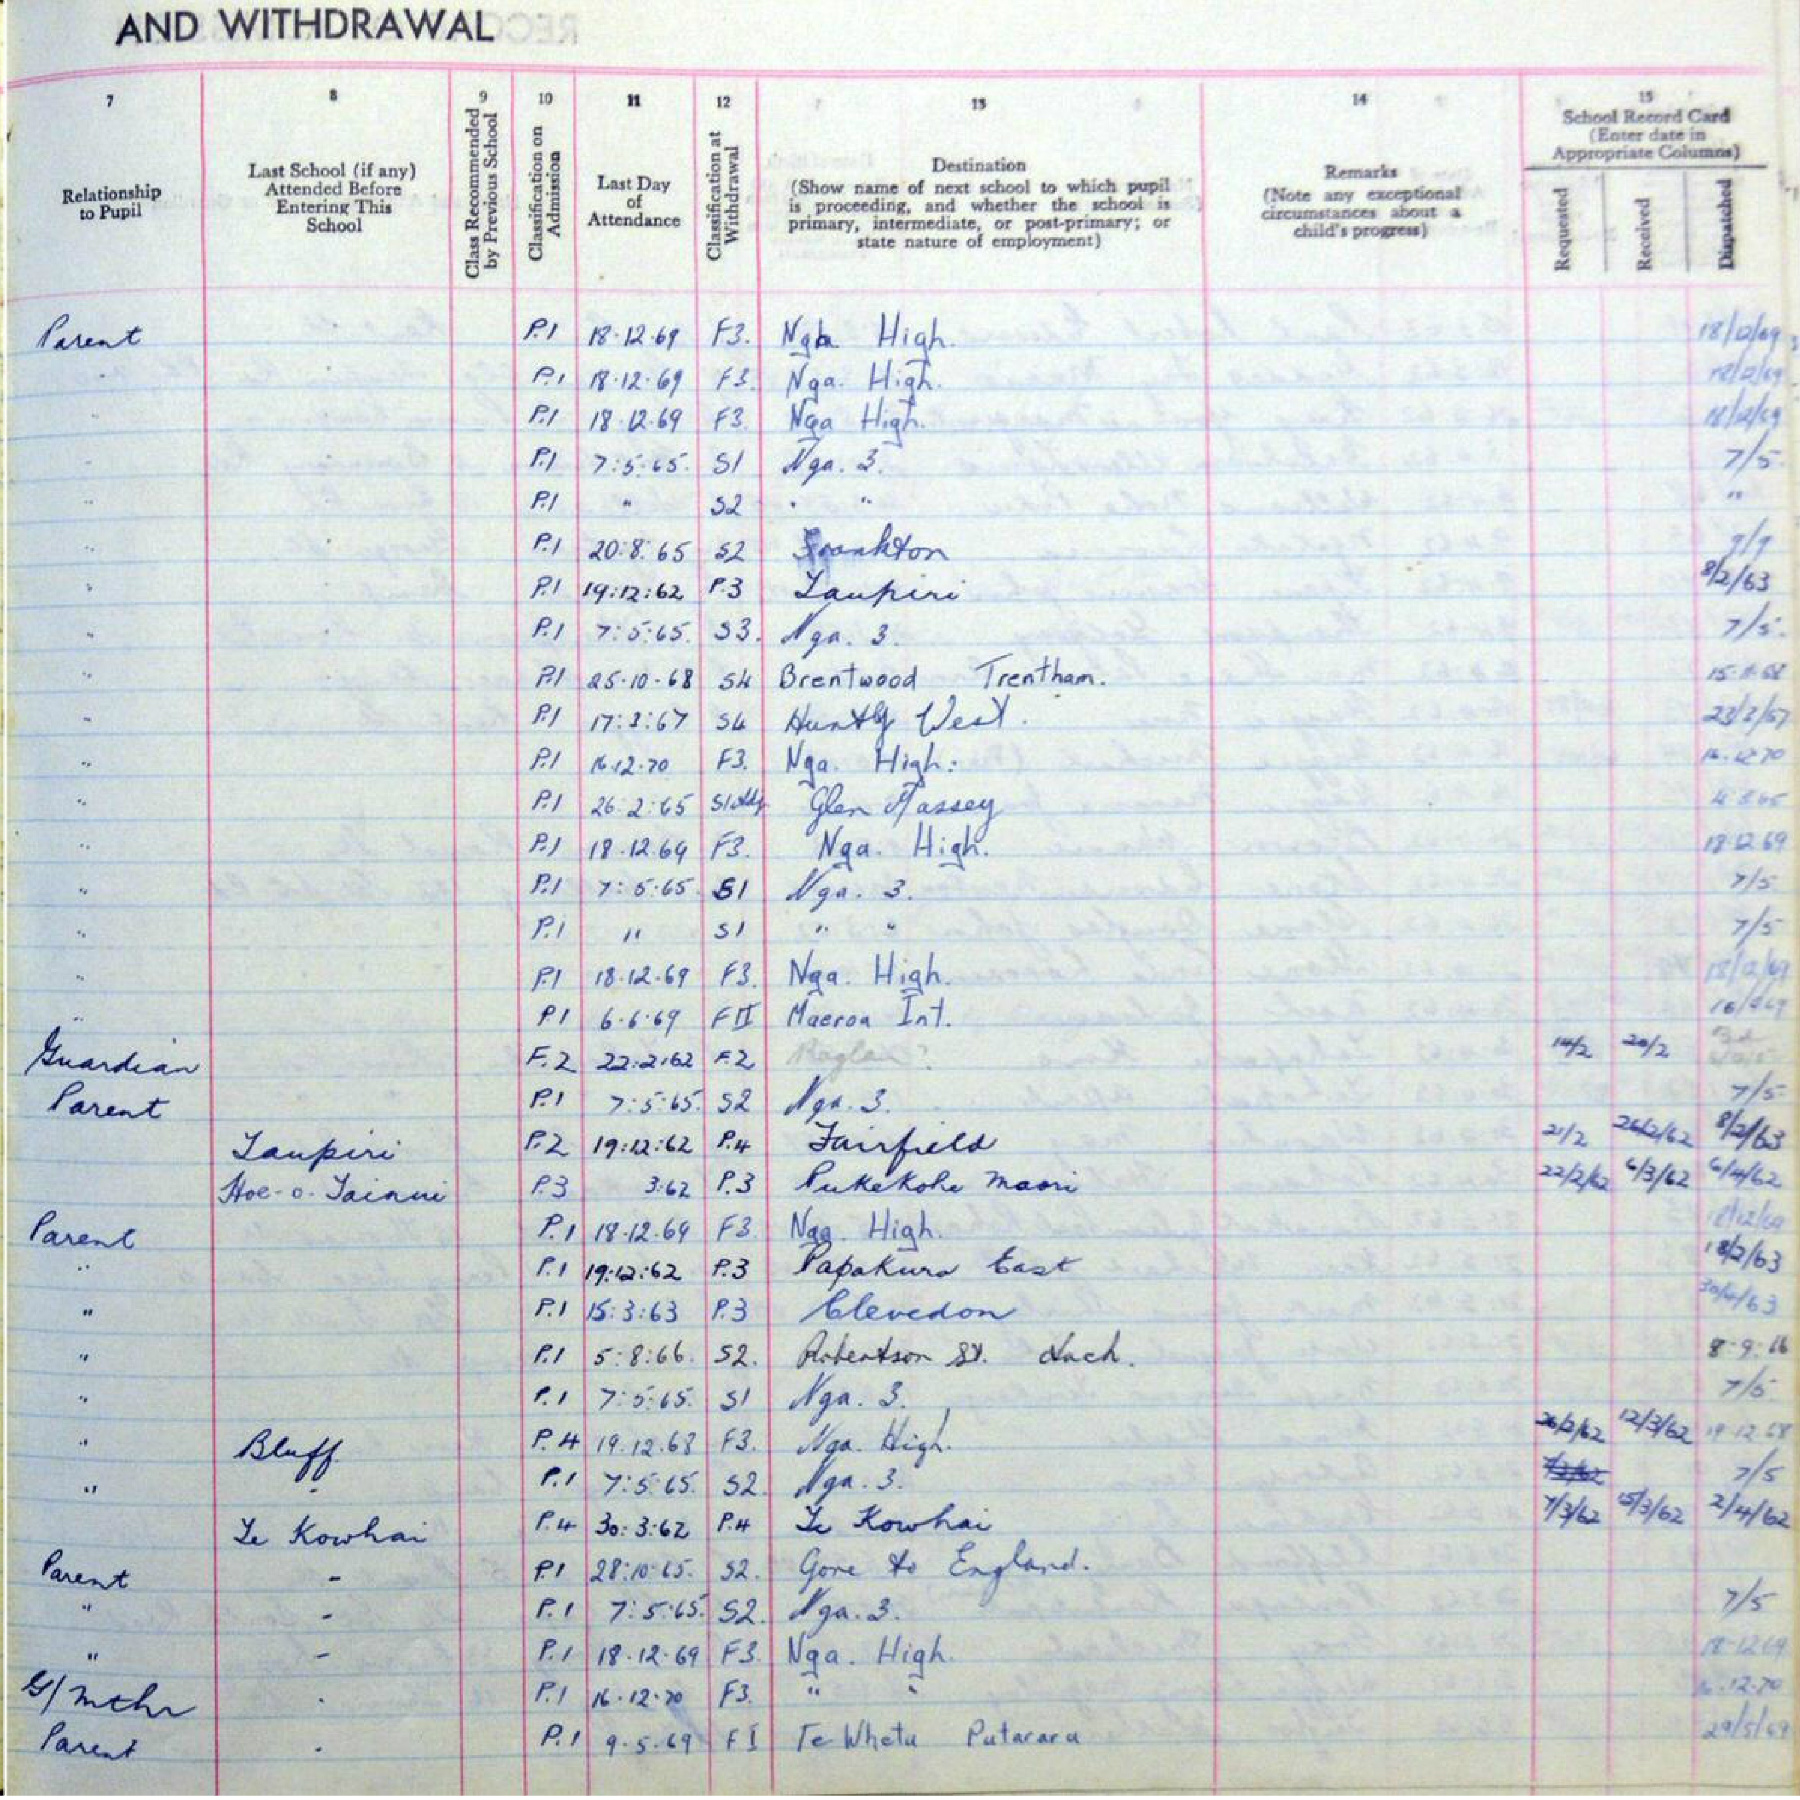 AND WITHDRAWAL
7 8 9 10 11 12 13 14 15
Relationship to Pupil
Last School (if any) Attended Before Entering This School
Class Recommended by Previous School
Classification on Admission
Last Day of Attendance
Classification at Withdrawal
Destination
(Show name of next school to which pupil is proceeding, and whether the school is primary, intermediate, or post-primary; or state nature of employment)
Remarks
(Note any exceptional circumstances about a child's progress)
School Record Card
(Enter date in Appropriate Columns)
Requested Received Dispatched
Parent P.1 18.12.69 F3. Nga High. 18/12/69
" P.1 18.12.69 F3. Nga. High. 18/12/69
" P.1 18.12.69 F3. Nga High. 18/12/69
" P.1 7:5:65. S1 Nga. 3. 7/5.
" P.1 " S2 " " "
" P.1 20:8:65 S2 Frankton 9/9
" P.1 19:12:62 P.3 Taupiri 8/2/63
" P.1 7:5:65. S3. Nga. 3. 7/5.
" P.1 25-10-68 S4 Brentwood Trentham. 15-11-68
" P.1 17:3:67 S4 Huntly West. 23/3/67
" P.1 16.12.70 F3. Nga. High: 16.12.70
" P.1 26:2:65 S1 Glen Massey
" P.1 18.12.69 F3. Nga. High. 18.12.69
" P.1 7:5:65. S1 Nga. 3. 7/5
" P.1 " S1 " " 7/5
" P.1 18.12.69 F3. Nga. High. 18/12/69
" P.1 6.6.69 FII Maeroa Int.
Guardian F.2 22:2:62 F.2 Raglan? 14/2 20/2
Parent P.1 7:5:65. S2 Nga. 3. 7/5.
Taupiri P.2 19:12:62 P.4 Fairfield 21/2 26/2/62 8/2/63
Hoe-o-Tainui P.3 3:62 P.3 Pukekohe Maori 22/2/62 6/3/62 6/4/62
Parent P.1 18.12.69 F3. Nga. High. 18/12/69
" P.1 19:12:62 P.3 Papakura East 18/2/63
" P.1 15:3:63 P.3 Clevedon 30/4/63
" P.1 5:8:66. S2. Robertson St. 8-9:66
" P.1 7:5:65. S1 Nga. 3. 7/5
" Bluff P.4 19.12.68 F3. Nga. High. 26/2/62 12/3/62 19.12.68
" - P.1 7:5:65. S2. Nga. 3. 7/5
Te Kowhai P.4 30:3:62 P.4 Te Kowhai 7/3/62 15/3/62 2/4/62
Parent - P.1 28:10:65. S2. Gone to England.
" - P.1 7:5:65. S2. Nga. 3. 7/5
" - P.1 18.12.69 F3. Nga. High. 18-12-69
G/mthr . P.1 16.12.70 F3. " " 16.12.70
Parent . P.1 9.5.69 FI Te Whetu Putaruru 29/5/69